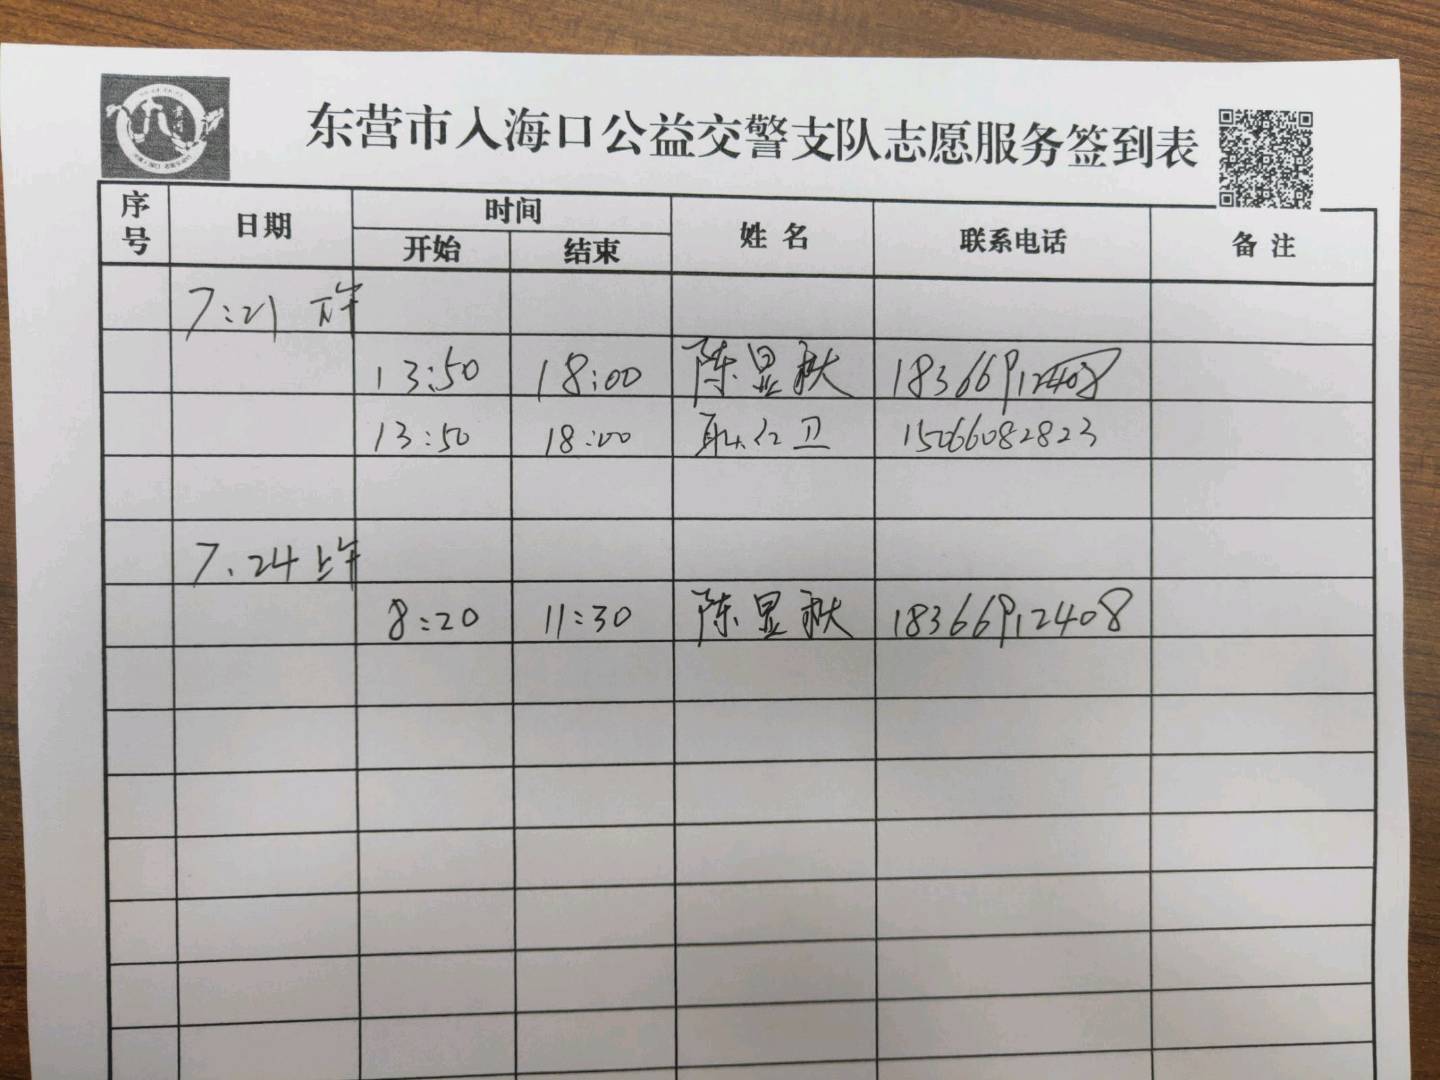 东营市入海口公益交警支队志愿服务签到表
序号 日期 时间 姓名 联系电话 备注
开始 结束
7:21 下午
13:50 18:00 陈显秋 18366912408
13:50 18:00 耿红卫 15066082823
7.24 上午
8:20 11:30 陈显秋 18366912408